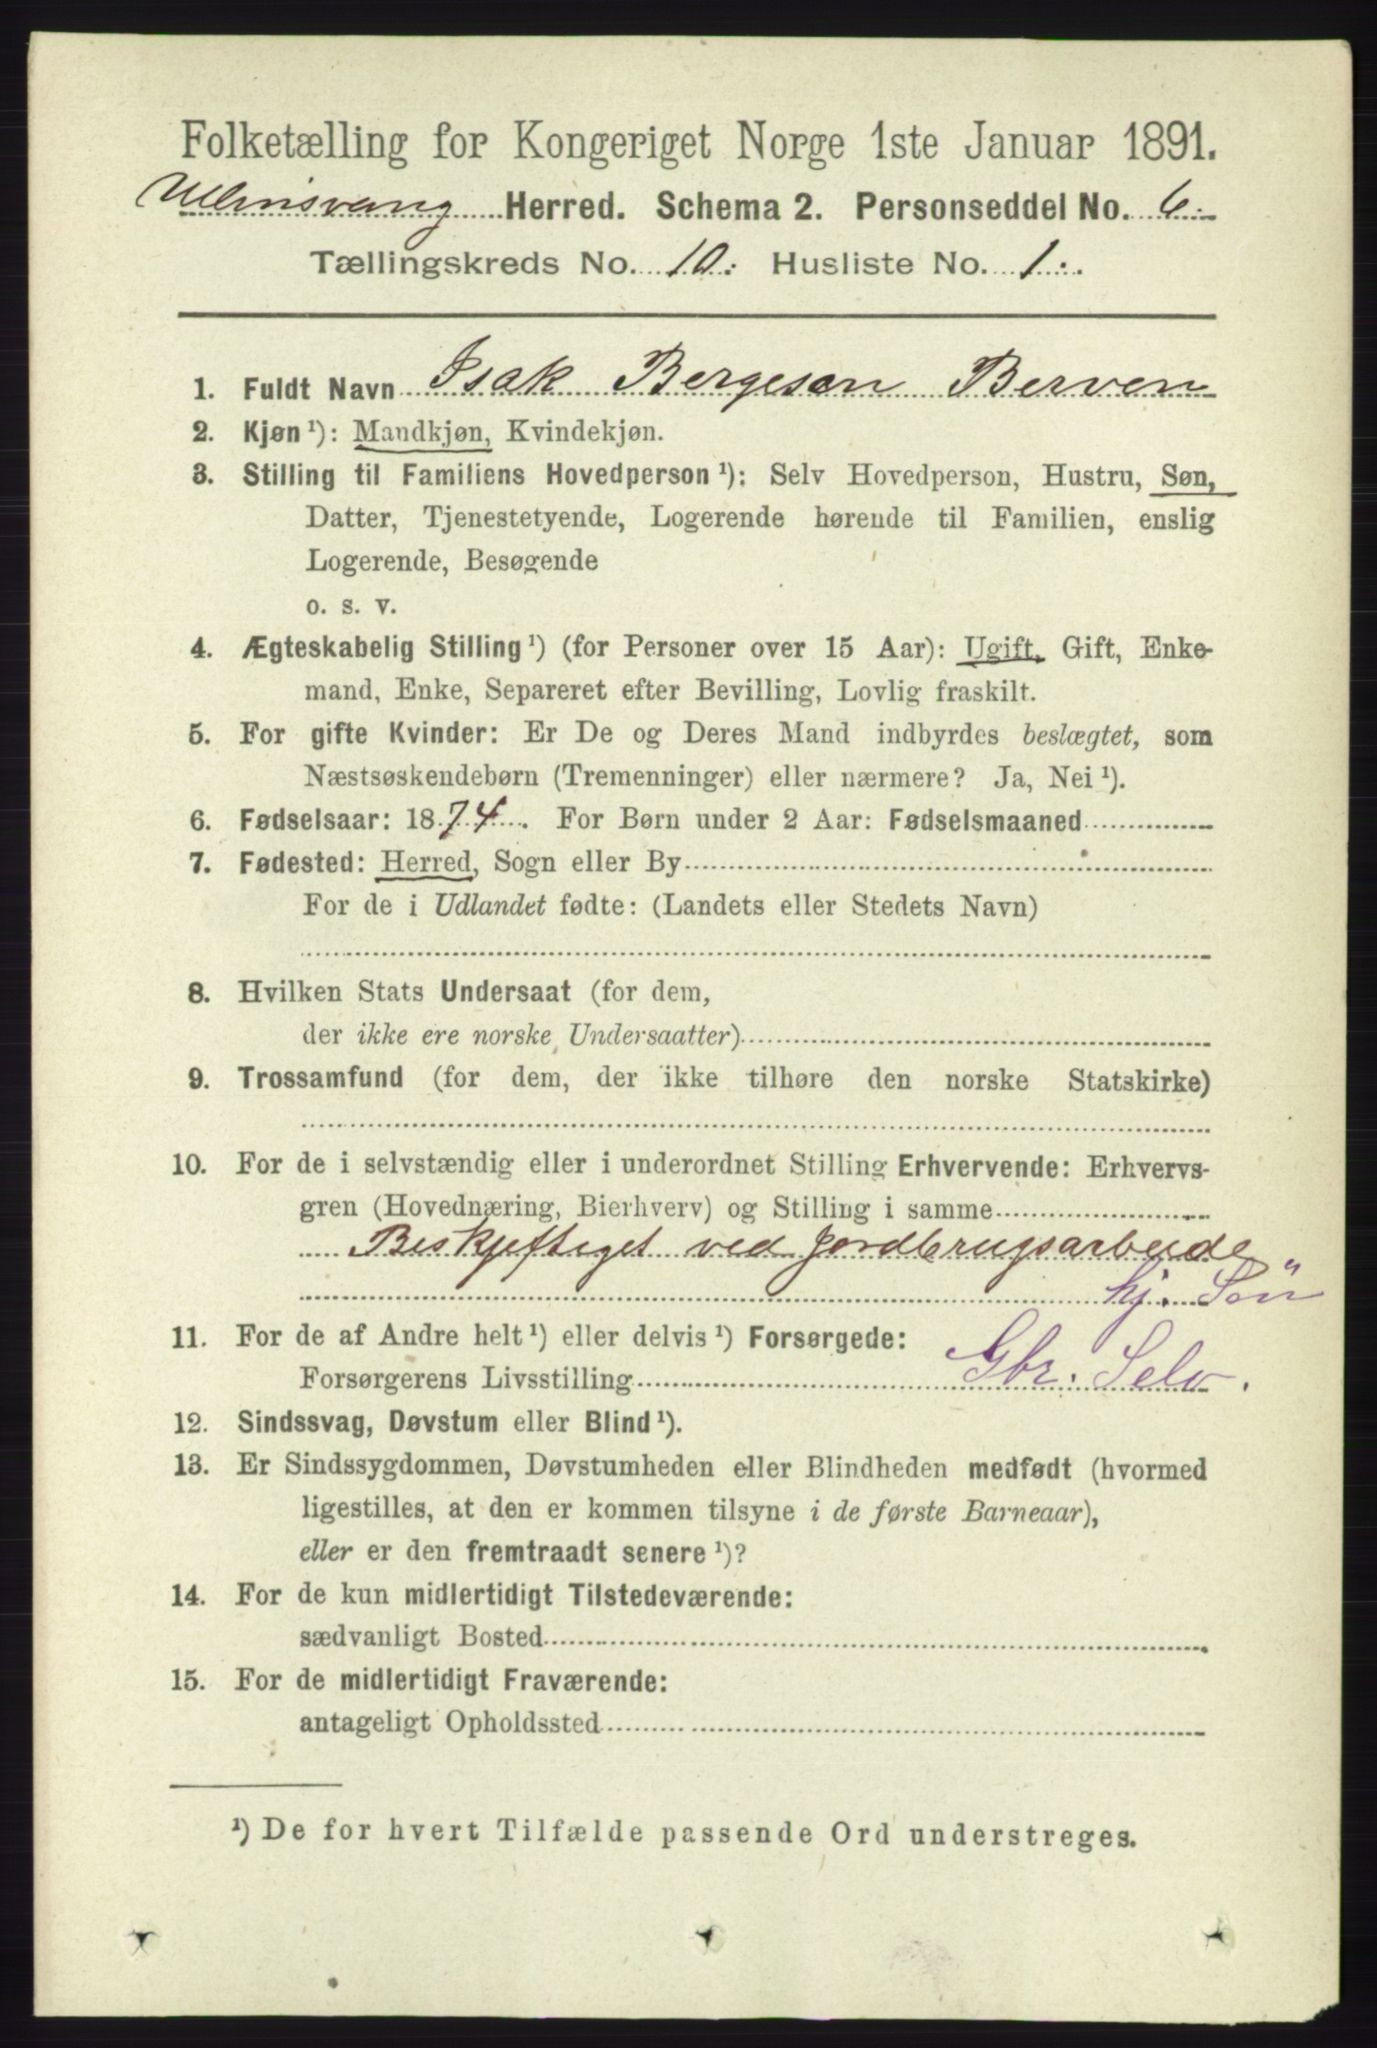 Folketælling for Kongeriget Norge 1ste Januar 1891.
Ullensvang Herred. Schema 2. Personseddel No. 6.
Tællingskreds No. 10. Husliste No. 1.
1. Fuldt Navn Isak Bergeson Berven
2. Kjøn ¹): Mandkjøn, Kvindekjøn.
3. Stilling til Familiens Hovedperson ¹): Selv Hovedperson, Hustru, Søn,
Datter, Tjenestetyende, Logerende hørende til Familien, enslig
Logerende, Besøgende
o. s. v.
4. Ægteskabelig Stilling ¹) (for Personer over 15 Aar): Ugift, Gift, Enke-
mand, Enke, Separeret efter Bevilling, Lovlig fraskilt.
5. For gifte Kvinder: Er De og Deres Mand indbyrdes beslægtet, som
Næstsøskendebørn (Tremenninger) eller nærmere? Ja, Nei ¹).
6. Fødselsaar: 1874. For Børn under 2 Aar: Fødselsmaaned
7. Fødested: Herred, Sogn eller By
For de i Udlandet fødte: (Landets eller Stedets Navn)
8. Hvilken Stats Undersaat (for dem,
der ikke ere norske Undersaatter)
9. Trossamfund (for dem, der ikke tilhøre den norske Statskirke)
10. For de i selvstændig eller i underordnet Stilling Erhvervende: Erhvervs-
gren (Hovednæring, Bierhverv) og Stilling i samme
Beskjeftiget ved Jordbrugsarbeide
hj. Søn
11. For de af Andre helt ¹) eller delvis ¹) Forsørgede:
Forsørgerens Livsstilling Gbr. Selv.
12. Sindssvag, Døvstum eller Blind ¹).
13. Er Sindssygdommen, Døvstumheden eller Blindheden medfødt (hvormed
ligestilles, at den er kommen tilsyne i de første Barneaar),
eller er den fremtraadt senere ¹)?
14. For de kun midlertidigt Tilstedeværende:
sædvanligt Bosted
15. For de midlertidigt Fraværende:
antageligt Opholdssted
¹) De for hvert Tilfælde passende Ord understreges.